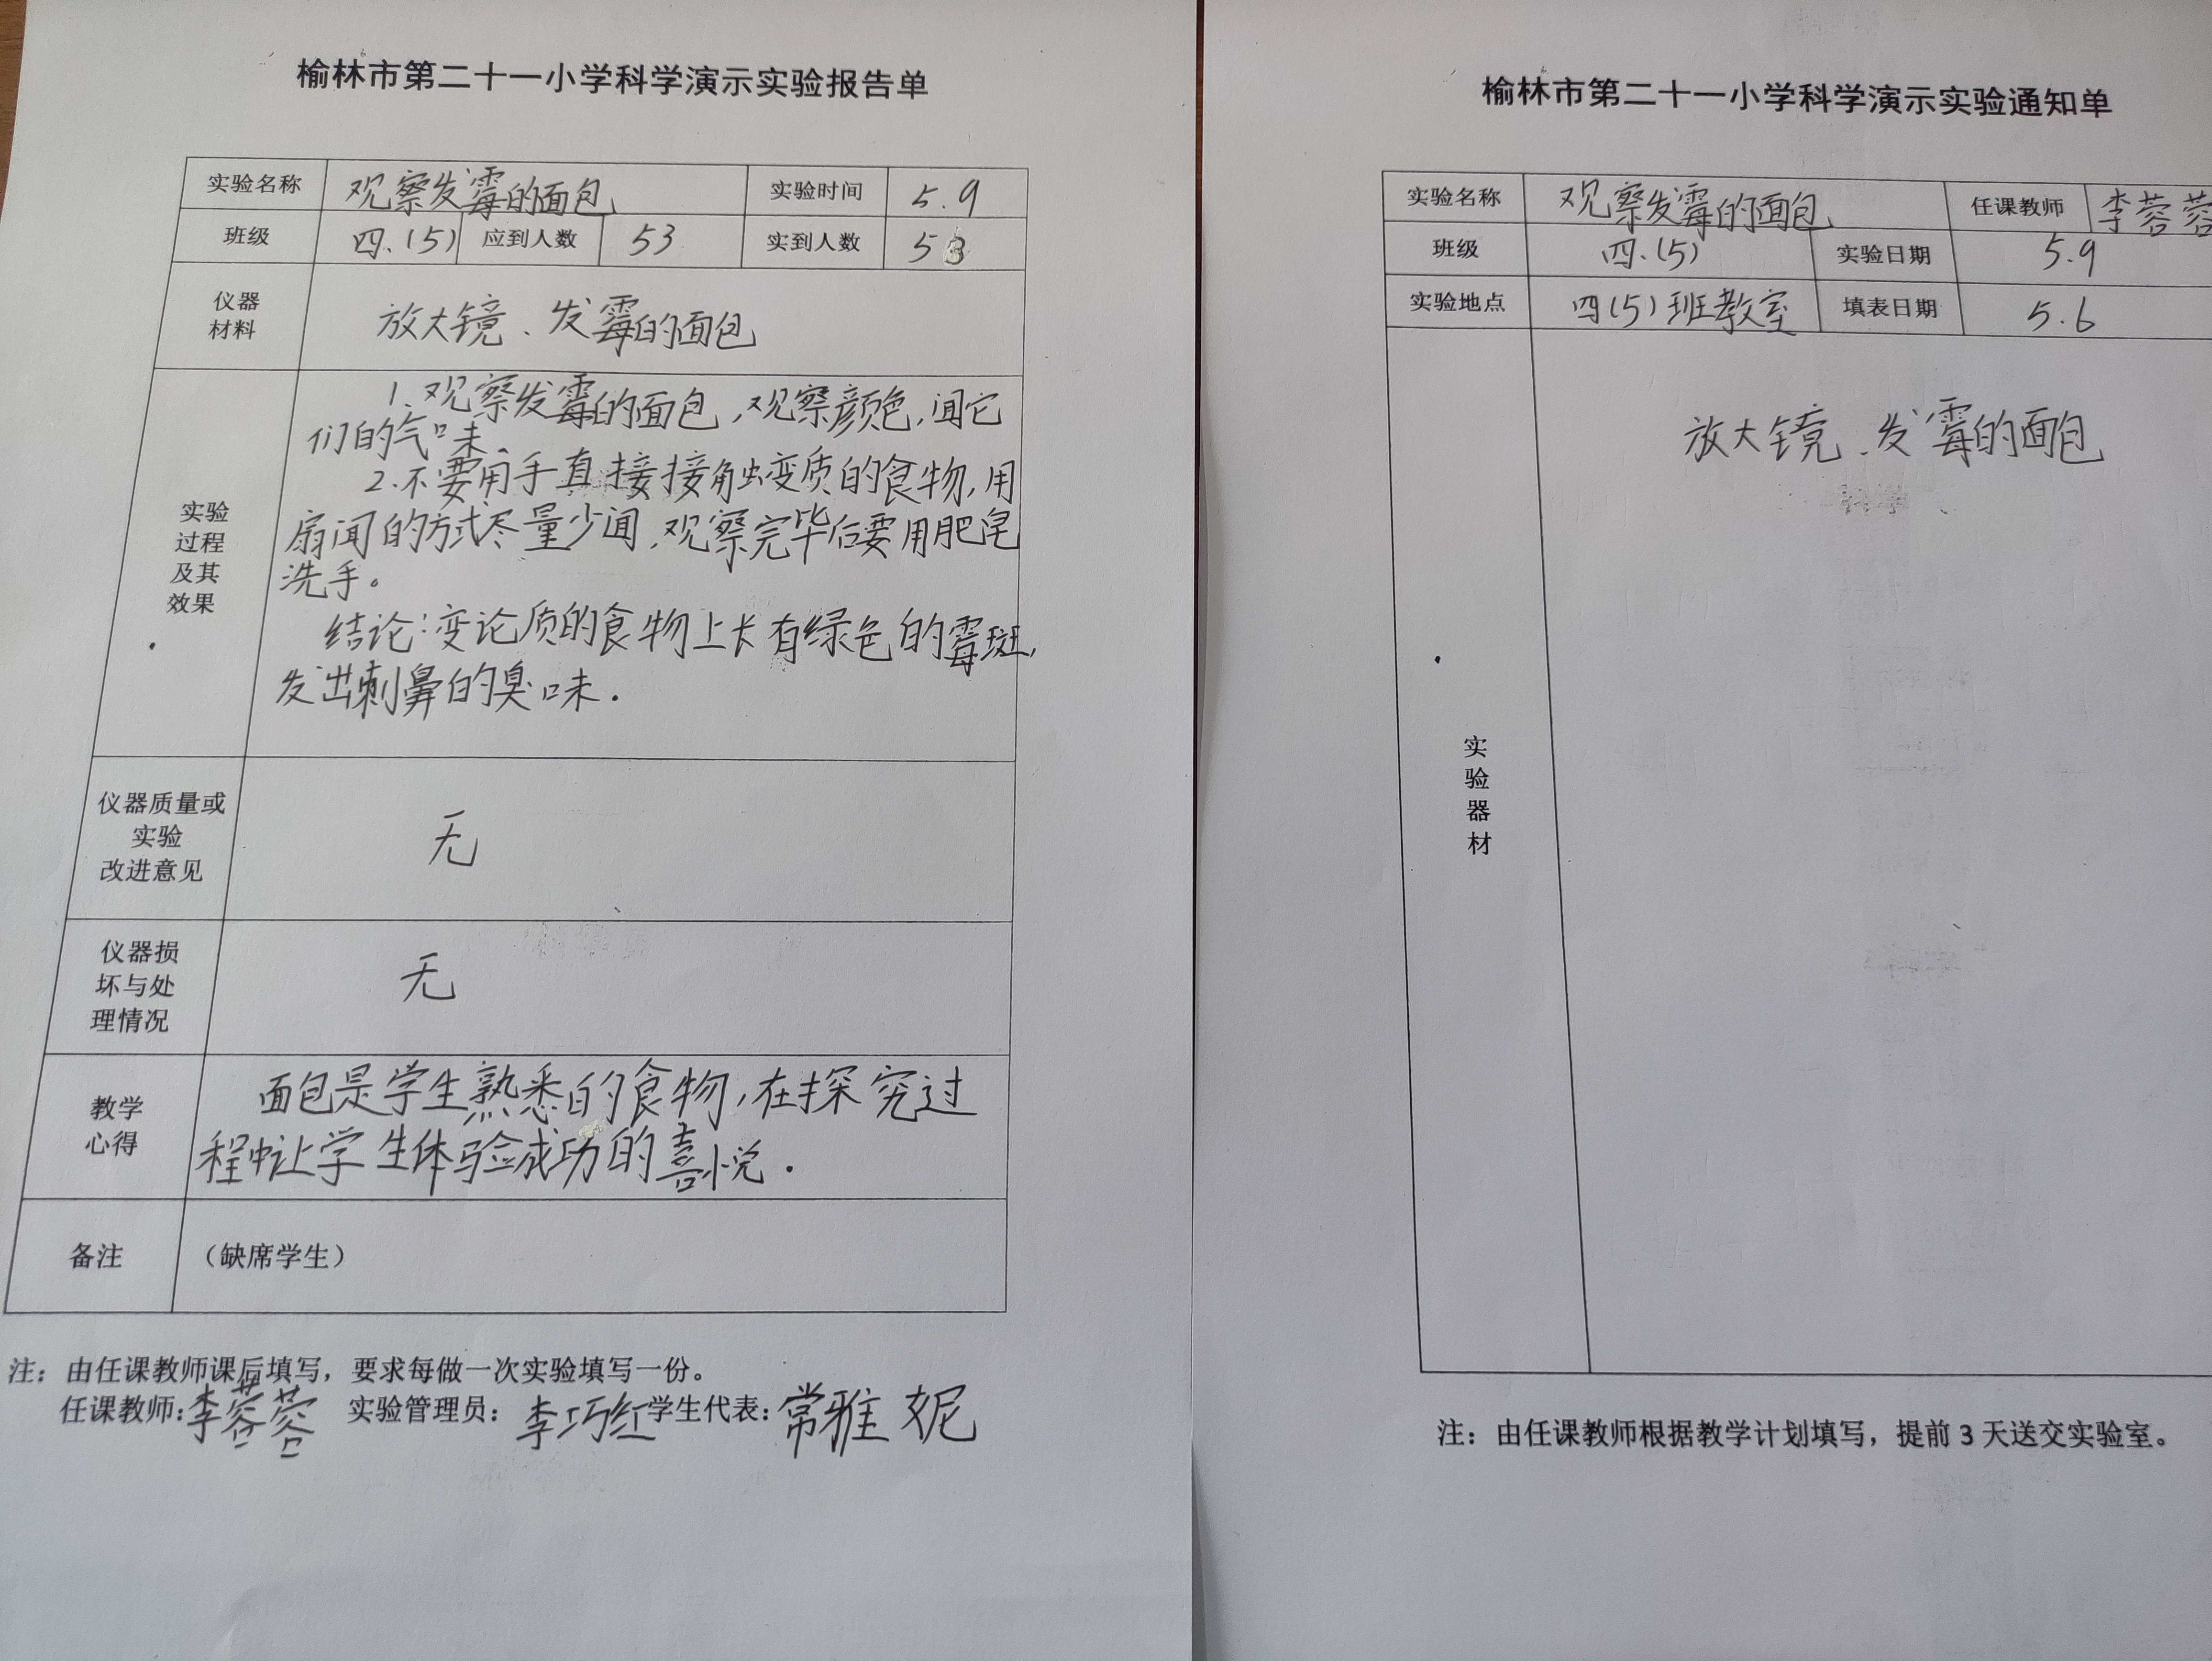 榆林市第二十一小学科学演示实验报告单
实验名称 观察发霉的面包 实验时间 5.9
班级 四.(5) 应到人数 53 实到人数 53
仪器
材料
放大镜、发霉的面包
实验
过程
及其
效果
1.观察发霉的面包,观察颜色,闻它
们的气味.
2.不要用手直接接触变质的食物,用
扇闻的方式尽量少闻,观察完毕后要用肥皂
洗手。
结论:变论质的食物上长有绿色的霉斑,
发出刺鼻的臭味.
仪器质量或
实验
改进意见
无
仪器损
坏与处
理情况
无
教学
心得
面包是学生熟悉的食物,在探究过
程中让学生体验成功的喜悦.
备注 (缺席学生)
注:由任课教师课后填写,要求每做一次实验填写一份。
任课教师:李蓉蓉 实验管理员:李巧红 学生代表:常雅妮
榆林市第二十一小学科学演示实验通知单
实验名称 观察发霉的面包 任课教师 李蓉蓉
班级 四.(5) 实验日期 5.9
实验地点 四(5)班教室 填表日期 5.6
实
验
器
材
放大镜、发霉的面包
注:由任课教师根据教学计划填写,提前3天送交实验室。